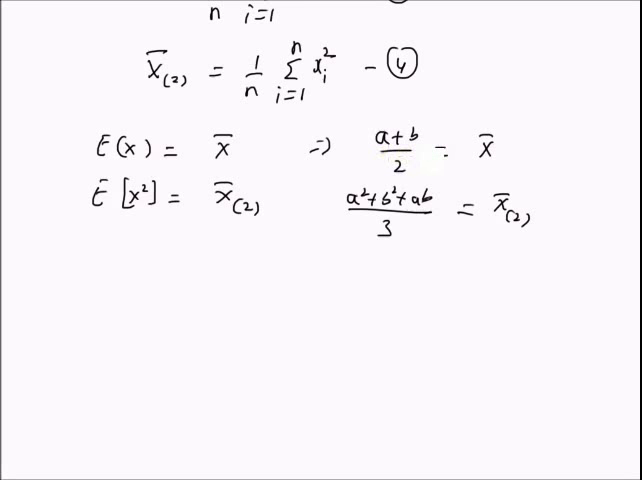 n i=1
x̄₍₂₎ = 1/n Σⁿᵢ₌₁ xᵢ² - ④
E(x) = x̄ ⇒ (a+b)/2 = x̄
E[x²] = x̄₍₂₎ (a²+b²+ab)/3 = x̄₍₂₎